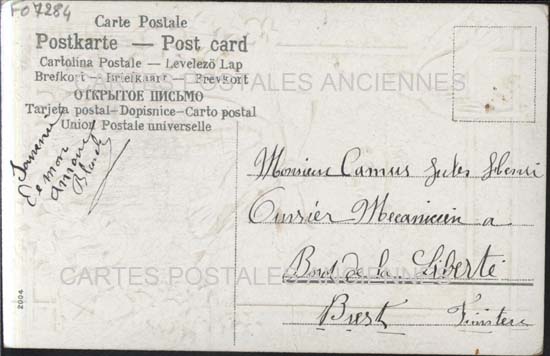 F07284
Carte Postale
Postkarte — Post card
Cartolina Postale – Levelező Lap
Brefkort – Briefkaart – Brevkort
ОТКРЫТОЕ ПИСЬМО
Tarjeta postal – Dopisnice – Carto postal
Union Postale universelle
Souvenir
De mon
amour
Blanche
Monsieur Camus Jules Henri
Ouvrier Mecanicien a
Bord de la Liberté
Brest Finistere
CARTES POSTALES ANCIENNES
CARTES POSTALES ANCIENNES
2004